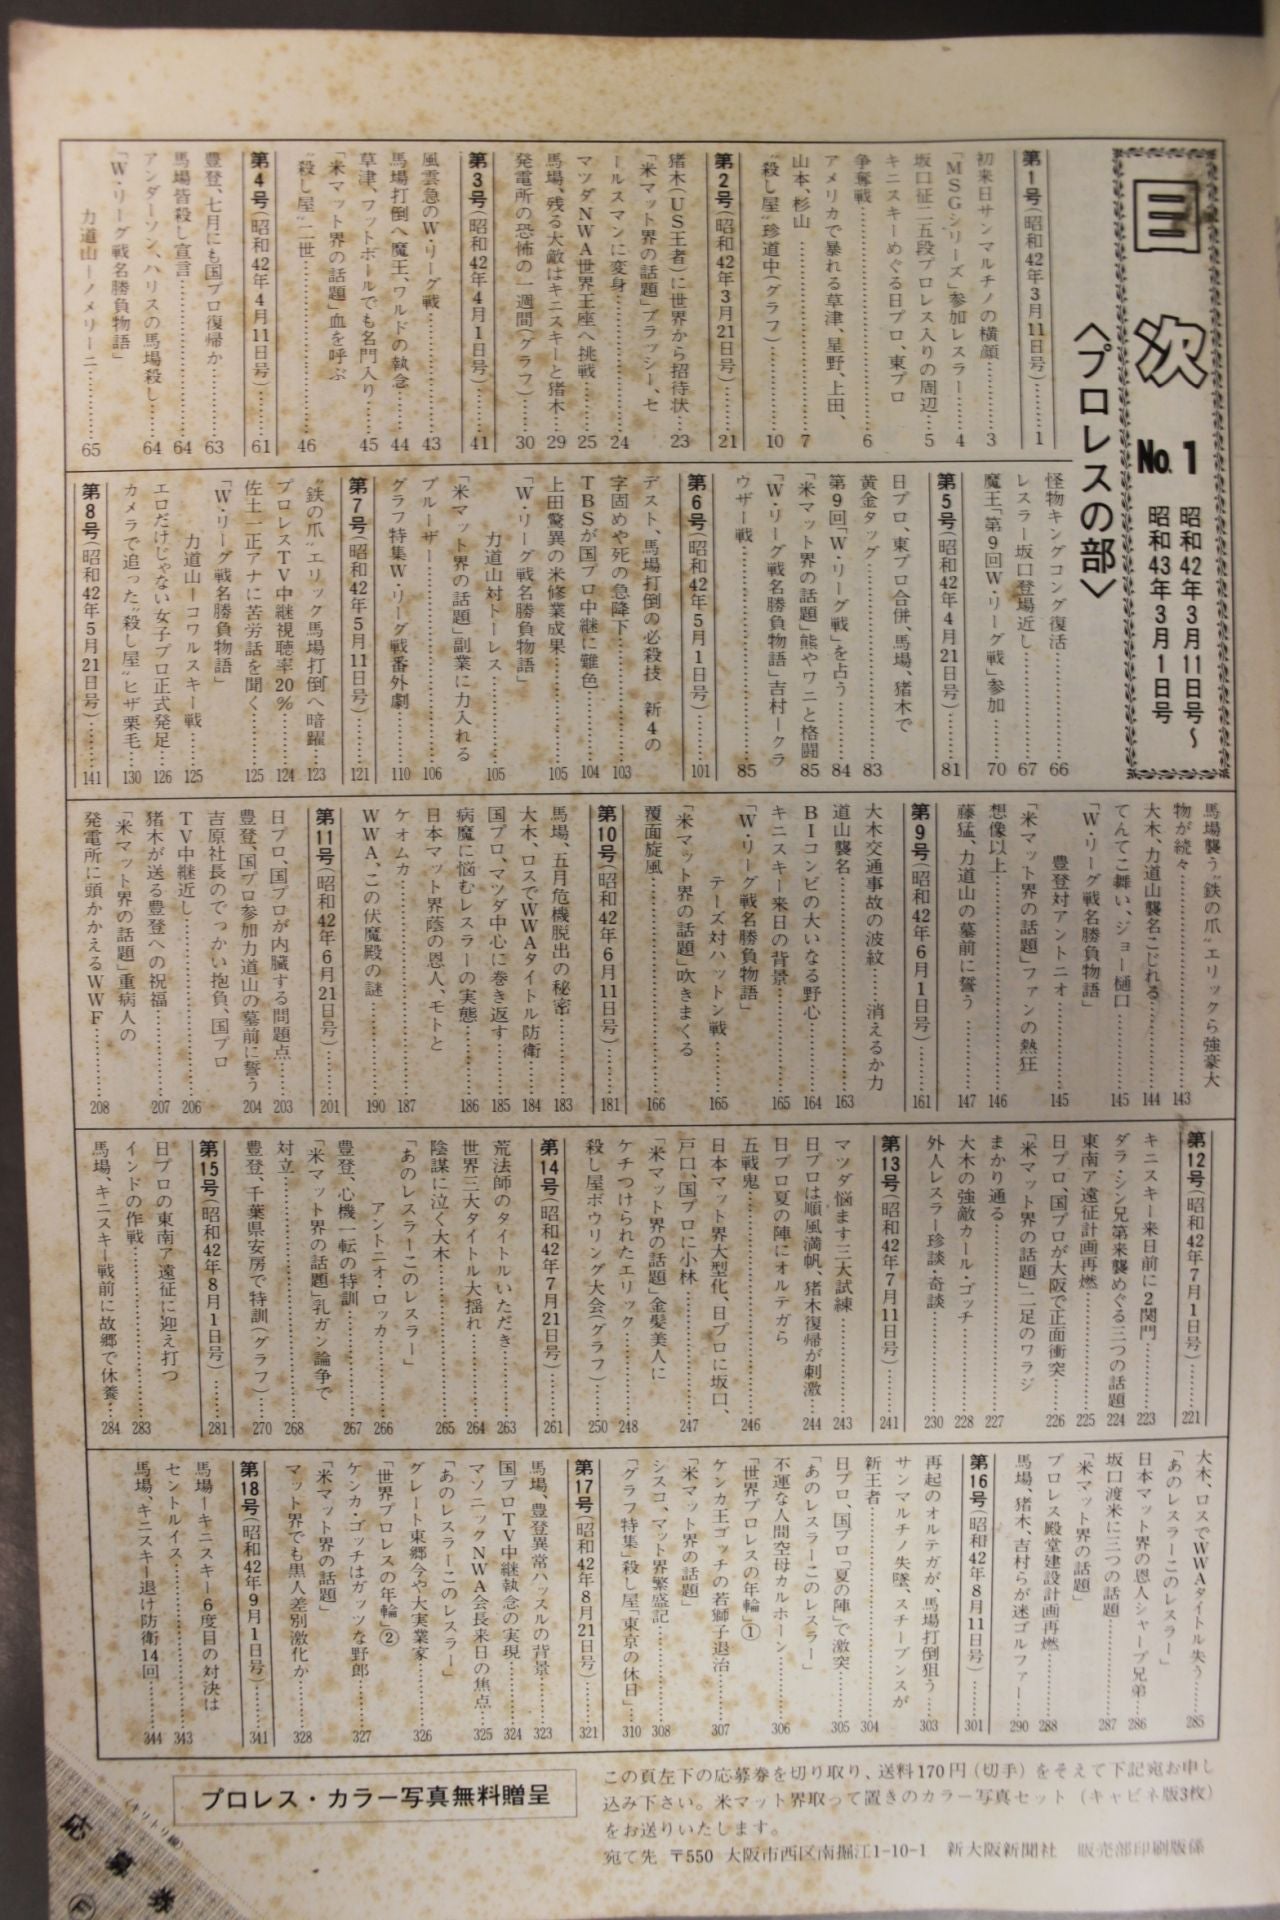 目次 No.1
昭和42年3月11日号〜
昭和43年3月1日号
〈プロレスの部〉
第1号(昭和42年3月11日号)………1
初来日サンマルチノの横顔………3
「MSGシリーズ」参加レスラー……4
坂口征二五段プロレス入りの周辺……5
キニスキーめぐる日プロ、東プロ
争奪戦………6
アメリカで暴れる草津、星野、上田、
山本、杉山………7
〝殺し屋〟珍道中(グラフ)………10
第2号(昭和42年3月21日号)………21
猪木(US王者)に世界から招待状……23
「米マット界の話題」ブラッシー、セ
ールスマンに変身………24
マツダNWA世界王座へ挑戦………25
馬場、残る大敵はキニスキーと猪木……29
発電所の恐怖の一週間(グラフ)……30
第3号(昭和42年4月1日号)………41
風雲急のW・リーグ戦………43
馬場打倒へ魔王、ワルドの執念……44
草津、フットボールでも名門入り……45
「米マット界の話題」血を呼ぶ
〝殺し屋〟二世………46
第4号(昭和42年4月11日号)………61
豊登、七月にも国プロ復帰か………63
馬場皆殺し宣言………64
アンダーソン、ハリスの馬場殺し……64
「W・リーグ戦名勝負物語」
力道山ーノメリーニ………65
怪物キングコング復活………66
レスラー坂口登場近し………67
魔王「第9回W・リーグ戦」参加……70
第5号(昭和42年4月21日号)………81
日プロ、東プロ合併、馬場、猪木で
黄金タッグ………83
第9回「W・リーグ戦」を占う………84
「米マット界の話題」熊やワニと格闘 85
「W・リーグ戦名勝負物語」吉村ークラ
ウザー戦………85
第6号(昭和42年5月1日号)………101
デスト、馬場打倒の必殺技 新4の
字固めや死の急降下………103
TBSが国プロ中継に難色………104
上田驚異の米修業成果………105
「W・リーグ戦名勝負物語」
力道山対トーレス………105
「米マット界の話題」副業に力入れる
ブルーザー………106
グラフ特集W・リーグ戦番外劇………110
第7号(昭和42年5月11日号)………121
〝鉄の爪〟エリック馬場打倒へ暗躍……123
プロレスTV中継視聴率20%………124
佐土一正アナに苦労話を聞く………125
「W・リーグ戦名勝負物語」
力道山ーコワルスキー戦………125
エロだけじゃない女子プロ正式発足……126
カメラで追った〝殺し屋〟ヒザ栗毛……130
第8号(昭和42年5月21日号)………141
馬場襲う〝鉄の爪〟エリックら強豪大
物が続々………143
大木、力道山襲名こじれる………144
てんてこ舞い、ジョー樋口………145
「W・リーグ戦名勝負物語」
豊登対アントニオ………145
「米マット界の話題」ファンの熱狂
想像以上………146
藤猛、力道山の墓前に誓う………147
第9号(昭和42年6月1日号)………161
大木交通事故の波紋……消えるか力
道山襲名………163
BIコンビの大いなる野心………164
キニスキー来日の背景………165
「W・リーグ戦名勝負物語」
テーズ対ハットン戦………165
「米マット界の話題」吹きまくる
覆面旋風………166
第10号(昭和42年6月11日号)………181
馬場、五月危機脱出の秘密………183
大木、ロスでWWAタイトル防衛……184
国プロ、マツダ中心に巻き返す………185
病魔に悩むレスラーの実態………186
日本マット界蔭の恩人、モトと
ケオムカ………187
WWA、この伏魔殿の謎………190
第11号(昭和42年6月21日号)………201
日プロ、国プロが内臓する問題点……203
豊登、国プロ参加力道山の墓前に誓う 204
吉原社長のでっかい抱負、国プロ
TV中継近し………206
猪木が送る豊登への祝福………207
「米マット界の話題」重病人の
発電所に頭かかえるWWF………208
第12号(昭和42年7月1日号)………221
キニスキー来日前に2関門………223
ダラ・シン兄弟来襲めぐる三つの話題 224
東南ア遠征計画再燃………225
日プロ、国プロが大阪で正面衝突……226
「米マット界の話題」二足のワラジ
まかり通る………227
大木の強敵カール・ゴッチ………228
外人レスラー珍談・奇談………230
第13号(昭和42年7月11日号)………241
マツダ悩ます三大試練………243
日プロは順風満帆、猪木復帰が刺激……244
日プロ夏の陣にオルテガら
五戦鬼………246
日本マット界大型化、日プロに坂口、
戸口、国プロに小林………247
「米マット界の話題」金髪美人に
ケチつけられたエリック………248
殺し屋ボウリング大会(グラフ)……250
第14号(昭和42年7月21日号)………261
荒法師のタイトルいただき………263
世界三大タイトル大揺れ………264
陰謀に泣く大木………265
「あのレスラーこのレスラー」
アントニオ・ロッカ………266
豊登、心機一転の特訓………267
「米マット界の話題」乳ガン論争で
対立………268
豊登、千葉県安房で特訓(グラフ)……270
第15号(昭和42年8月1日号)………281
日プロの東南ア遠征に迎え打つ
インドの作戦………283
馬場、キニスキー戦前に故郷で休養……284
大木、ロスでWWAタイトル失う……285
「あのレスラーこのレスラー」
日本マット界の恩人シャープ兄弟……286
坂口渡米に三つの話題………287
「米マット界の話題」
プロレス殿堂建設計画再燃………288
馬場、猪木、吉村らが迷ゴルファー……290
第16号(昭和42年8月11日号)………301
再起のオルテガが、馬場打倒狙う……303
サンマルチノ失墜、スチーブンスが
新王者………304
日プロ、国プロ「夏の陣」で激突……305
「あのレスラーこのレスラー」
不運な人間空母カルホーン………306
「世界プロレスの年輪」①
ケンカ王ゴッチの若獅子退治………307
「米マット界の話題」
シスコ、マット界繁盛記………308
「グラフ特集」殺し屋「東京の休日」……310
第17号(昭和42年8月21日号)………321
馬場、豊登異常ハッスルの背景………323
国プロTV中継執念の実現………324
マソニックNWA会長来日の焦点……325
「あのレスラーこのレスラー」
グレート東郷今や大実業家………326
「世界プロレスの年輪」②
ケンカ・ゴッチはガッツな野郎………327
「米マット界の話題」
マット界でも黒人差別激化か………328
第18号(昭和42年9月1日号)………341
馬場ーキニスキー6度目の対決は
セントルイス………343
馬場、キニスキー退け防衛14回………344
プロレス・カラー写真無料贈呈
この頁左下の応募券を切り取り、送料170円(切手)をそえて下記宛お申し
込み下さい。米マット界取って置きのカラー写真セット(キャビネ版3枚)
をお送りいたします。
宛て先 〒550 大阪市西区南掘江1-10-1 新大阪新聞社 販売部印刷版係
(キリトリ線)
応募券